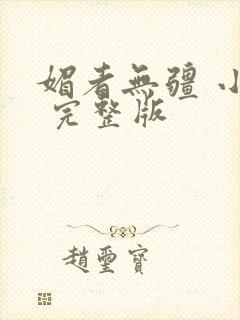 媚者無疆 小
完整版
趙璽寶